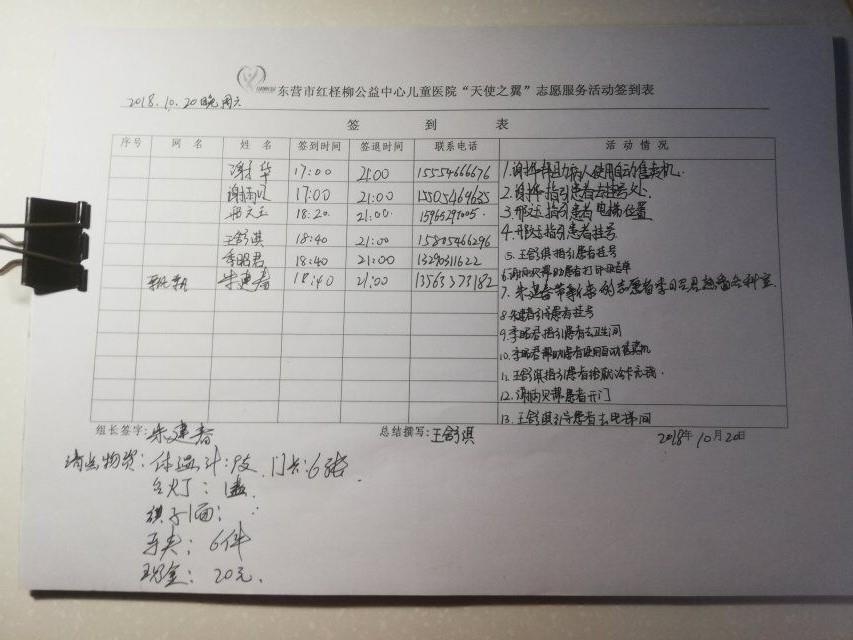 东营市红柽柳公益中心儿童医院“天使之翼”志愿服务活动签到表
2018.10.20晚 周六
签 到 表
序号 网 名 姓 名 签到时间 签退时间 联系电话 活 动 情 况
17:00 21:00 15554666676 1. 病人使用自动售卖机.
17:00 21:00 15505464635 2. 指引患者去挂号处.
18:20 21:00. 3. 指引患者电梯位置
4. 指引患者挂号
王舒淇 18:40 21:00 15805466296 5. 王舒淇指引患者挂号
李昭君 18:40 21:00 13290311622 6. 帮助患者打印
朱建春 18:40 21:00 13563373182 7. 朱建春带 志愿者李昭君熟悉各科室.
8. 朱建春引导患者挂号
9. 李昭君指引患者去卫生间
10. 李昭君帮助患者使用自动售卖机
11. 王舒淇指引患者给就诊卡充钱.
12. 帮患者开门
13. 王舒淇引导患者去电梯间
组长签字: 朱建春 总结撰写: 王舒淇 2018年10月20日
清点物资: 体温计: 门卡: 6张.
台灯: 1盏
旗子1面;
马夹: 6件
现金: 20元.